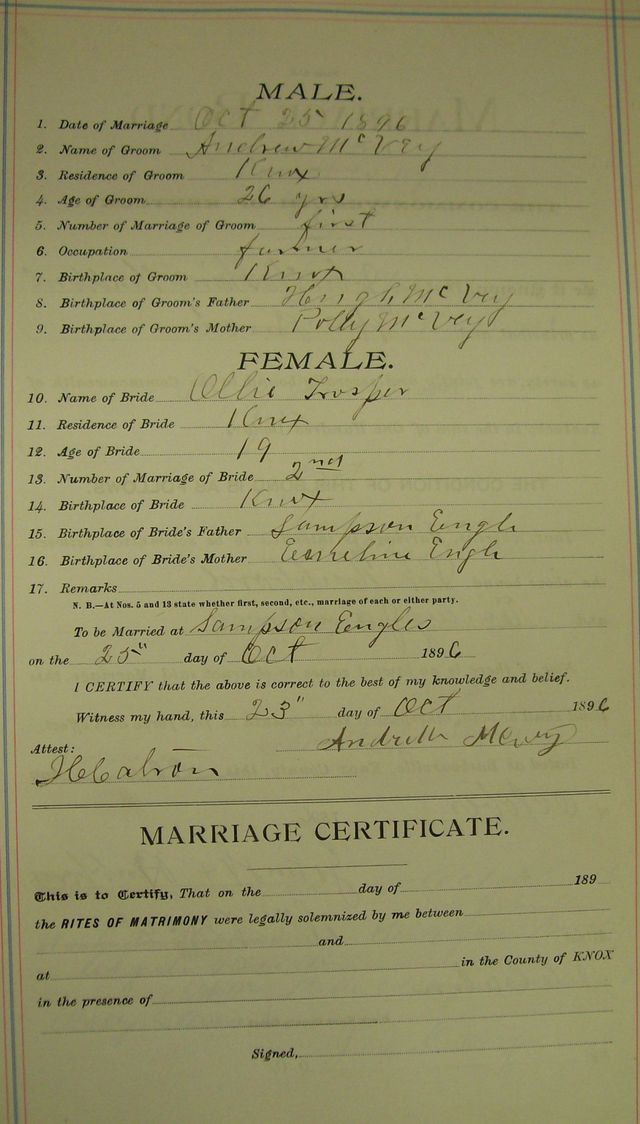 MALE.
1. Date of Marriage Oct 25 1896
2. Name of Groom Andrew McVey
3. Residence of Groom Knox
4. Age of Groom 26 yrs
5. Number of Marriage of Groom first
6. Occupation farmer
7. Birthplace of Groom Knox
8. Birthplace of Groom's Father Hugh McVey
9. Birthplace of Groom's Mother Polly McVey
FEMALE.
10. Name of Bride Ollie Trosper
11. Residence of Bride Knox
12. Age of Bride 19
13. Number of Marriage of Bride 2nd
14. Birthplace of Bride Knox
15. Birthplace of Bride's Father Sampson Engle
16. Birthplace of Bride's Mother Engle
17. Remarks
N. B.—At Nos. 5 and 13 state whether first, second, etc., marriage of each or either party.
To be Married at Sampson Engles
on the 25" day of Oct 1896
I CERTIFY that the above is correct to the best of my knowledge and belief.
Witness my hand, this 23" day of Oct 1896
Attest:
MARRIAGE CERTIFICATE.
This is to Certify, That on the day of 189
the RITES OF MATRIMONY were legally solemnized by me between
and
at in the County of KNOX
in the presence of
Signed,